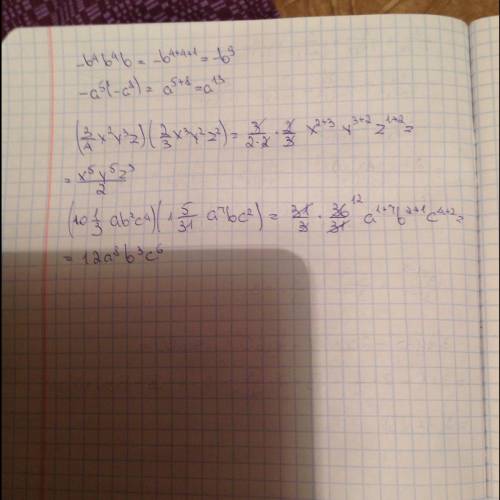 -b⁴b⁴b = -b⁴⁺⁴⁺¹ = -b⁹
-a⁵(-a⁸) = a⁵⁺⁸ = a¹³
(3/4 x²y³z)(2/3 x³y²z²) = 3/2·2 · 2/3 x²⁺³ y³⁺² z¹⁺² =
= x⁵y⁵z³/2
(10 1/3 ab²c⁴)(1 5/31 a⁷bc²) = 31/3 · 36/31 12 a¹⁺⁷b²⁺¹c⁴⁺² =
= 12a⁸b³c⁶